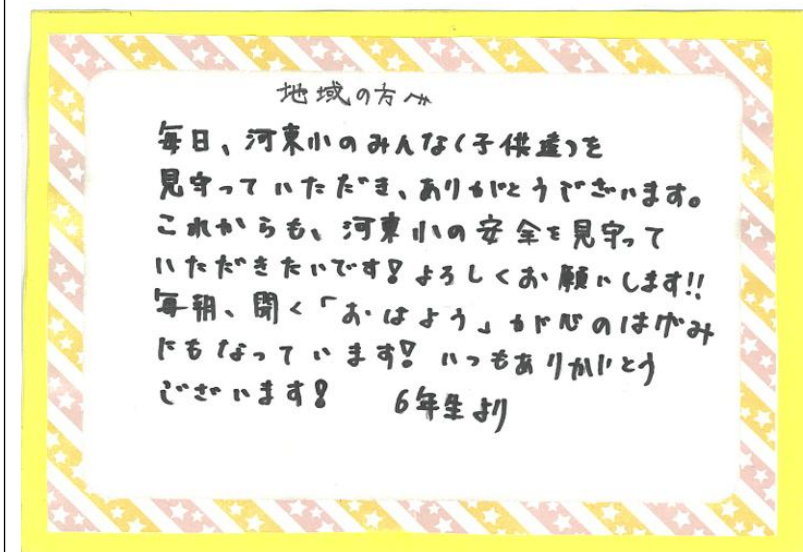 地域の方へ
毎日、河東小のみんな(子供達)を
見守っていただき、ありがとうございます。
これからも、河東小の安全を見守って
いただきたいです!よろしくお願いします!!
毎朝、聞く「おはよう」が心のはげみ
にもなっています!いつもありがとう
ございます!　6年生より